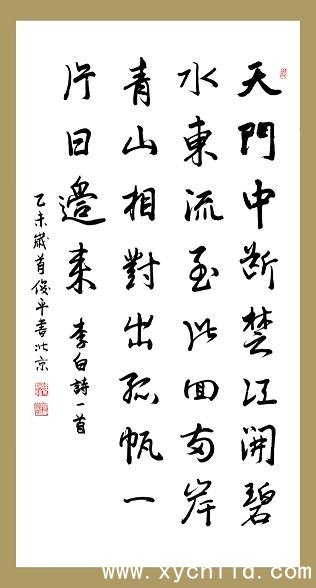 天門中断楚江開碧
水東流至此回两岸
青山相對出孤帆一
片日邊来 李白詩一首
乙未歲首俊平書北京
www.xychild.com